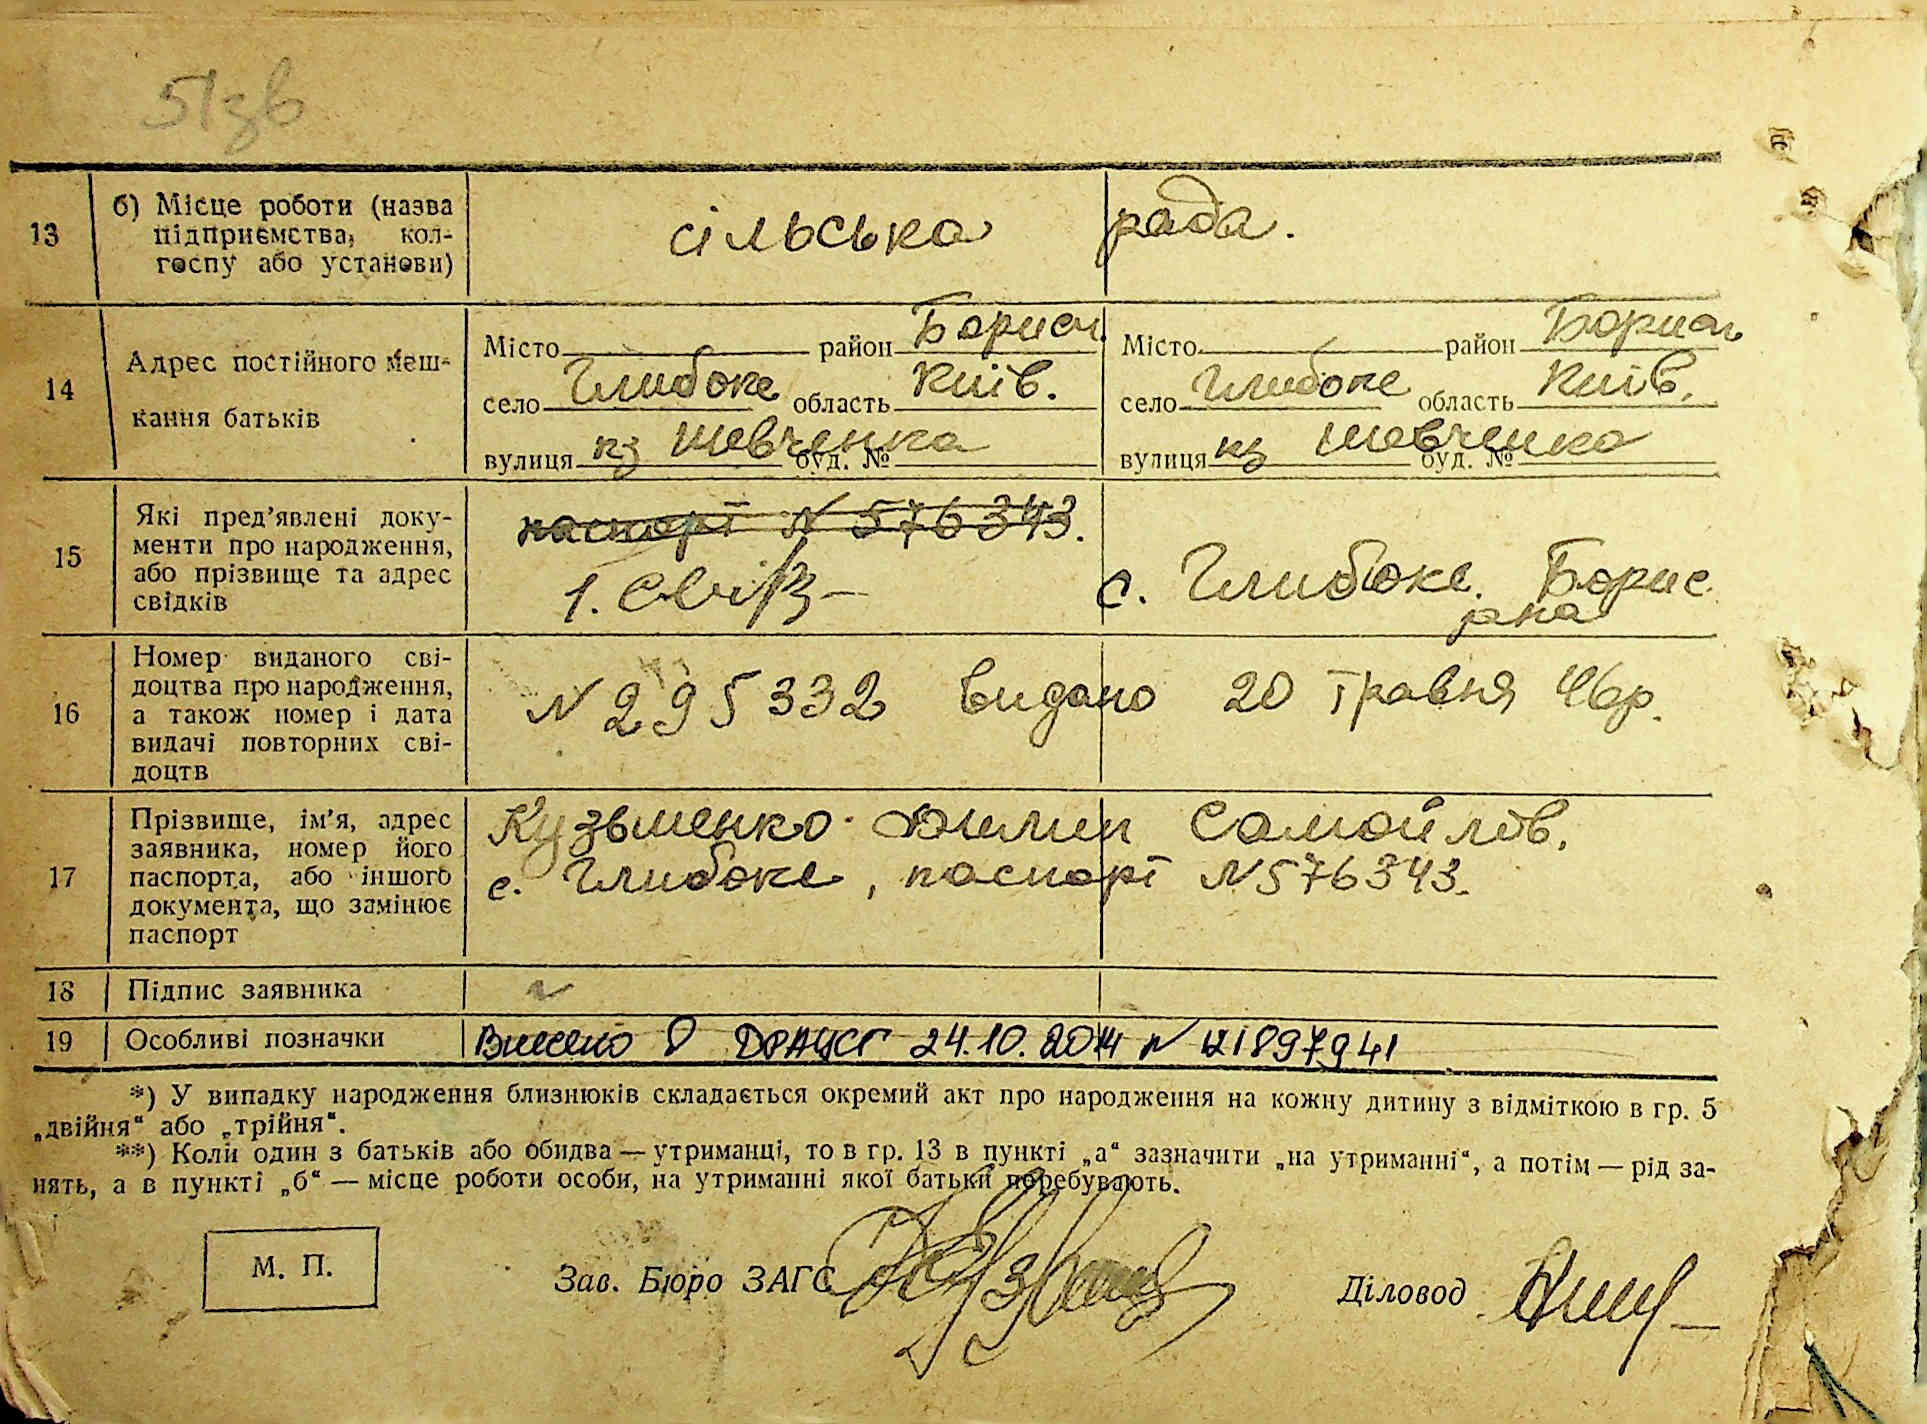 51зв
13 б) Місце роботи (назва підприємства, кол-госпу або установи) сільська рада.
14 Адрес постійного меш-кання батьків
Місто район Борисп. Місто район Борисп
село Глибоке область Київ. село Глибоке область Київ.
вулиця кз Шевченка буд. № вулиця кз Шевченко буд. №
15 Які пред'явлені доку-менти про народження, або прізвище та адрес свідків
паспорт N 576343.
1. с. Глибоке. Борис
рна
16 Номер виданого сві-доцтва про народження, а також номер і дата видачі повторних сві-доцтв
N 295332 видано 20 травня 46р.
17 Прізвище, ім'я, адрес заявника, номер його паспорта, або іншого документа, що замінює паспорт
Кузьменко Самойлов.
с. Глибоке, паспорт N 576343.
18 Підпис заявника
19 Особливі позначки Внесено в ДРАЦСГ 24.10.2014 N 121897941
*) У випадку народження близнюків складається окремий акт про народження на кожну дитину з відміткою в гр. 5
„двійня“ або „трійня“.
**) Коли один з батьків або обидва — утриманці, то в гр. 13 в пункті „а“ зазначити „на утриманні“, а потім — рід за-
нять, а в пункті „б“ — місце роботи особи, на утриманні якої батьки перебувають.
М. П. Зав. Бюро ЗАГС Діловод